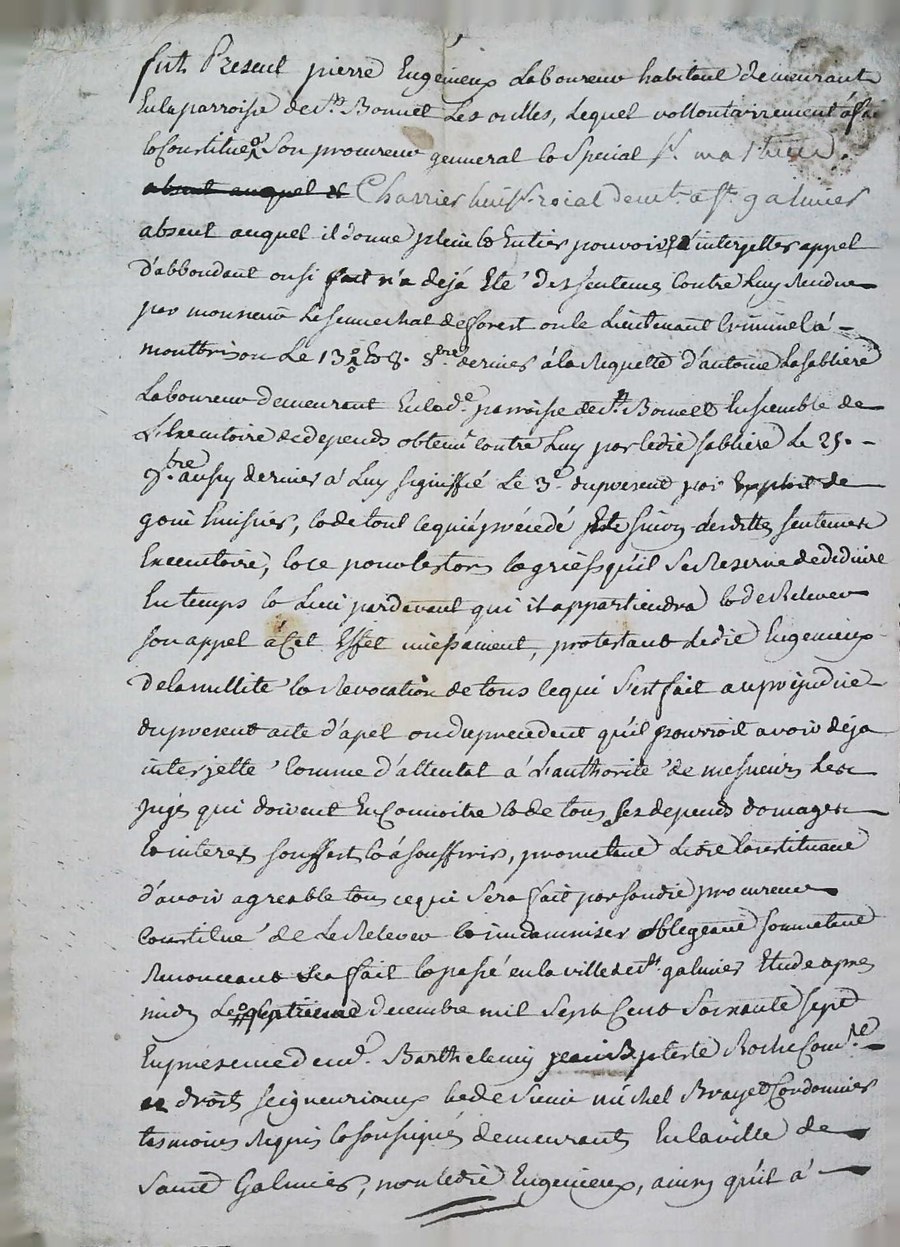 fut Present pierre Eugénieux Laboureur habitant demeurant
En la parroise de St. Bonnet Les oulles, Lequel vollontairement à fait
& Constitué Son procureur genneral & Special Sr. mathieu
absent auquel il Charrier huissr. roial demt. a St. galmier
absent auquel il donne plein & Entier pouvoir d'interjetter appel
D'abbondant ou si fait n'a déjà Eté des Sentences Contre Luy Rendues
par monsieur Le Sennechal de forest ou le Lieutenant Criminel à
montbrison Le 13e & 8e 8bre dernier à la Requette d'antoine La sabliere
Laboureur demeurant En lad. parroise de St. Bonnet Ensemble de
L'Executoire de depends obtenu contre Luy par ledit sabliere Le 25e
9bre aussy dernier à Luy signiffié Le 3e du present par Exploit de
huissier, & de tout ce qui à précédé & Suivy desdittes sentences
Executoire, & ce pour les torts & griefs qu'il Se Reserve de deduire
En temps & Lieu pardevant qui il appartiendra & de Relever
son appel à Cet Effet incessament, protestant Ledit Eugenieux
de la nullité & Revocation de tous ce qui S'est fait au préjudice
du present acte d'apel ou du precedent qu'il pourroit avoir déja
interjetté Comme d'attentat à L'authorité de messieurs Les
juges qui doivent En Connoitre & de tous Ses depends domages
& interets souffert & à souffrir, prometant Ledit Constituant
d'avoir agreable tous ce qui Sera fait par sondit procureur
Constitué de Le Relever & indamniser obligeant Soumetant
Renonceant fait & passé en la ville de St. galmier Etude apres
midy Le septieme decembre mil Sept Cent Soixante Sept
En presence de md. Barthelemy jean Baptiste Roche Comre.
droits seigneuriaux & de Sieur michel Brayet Cordonnier
tesmoins Requis & soussignés demeurants En la ville de
Saint Galmier, non ledit Eugenieux, ainsy qu'il à